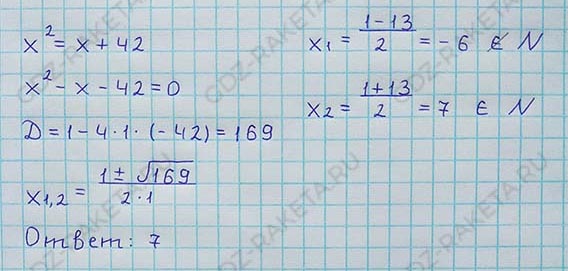 x² = x + 42
x² - x - 42 = 0
D = 1 - 4 · 1 · (-42) = 169
x₁,₂ = (1 ± √169) / (2 · 1)
Ответ: 7
x₁ = (1 - 13) / 2 = -6 ∉ N
x₂ = (1 + 13) / 2 = 7 ∈ N
GDZ-RAKETA.RU